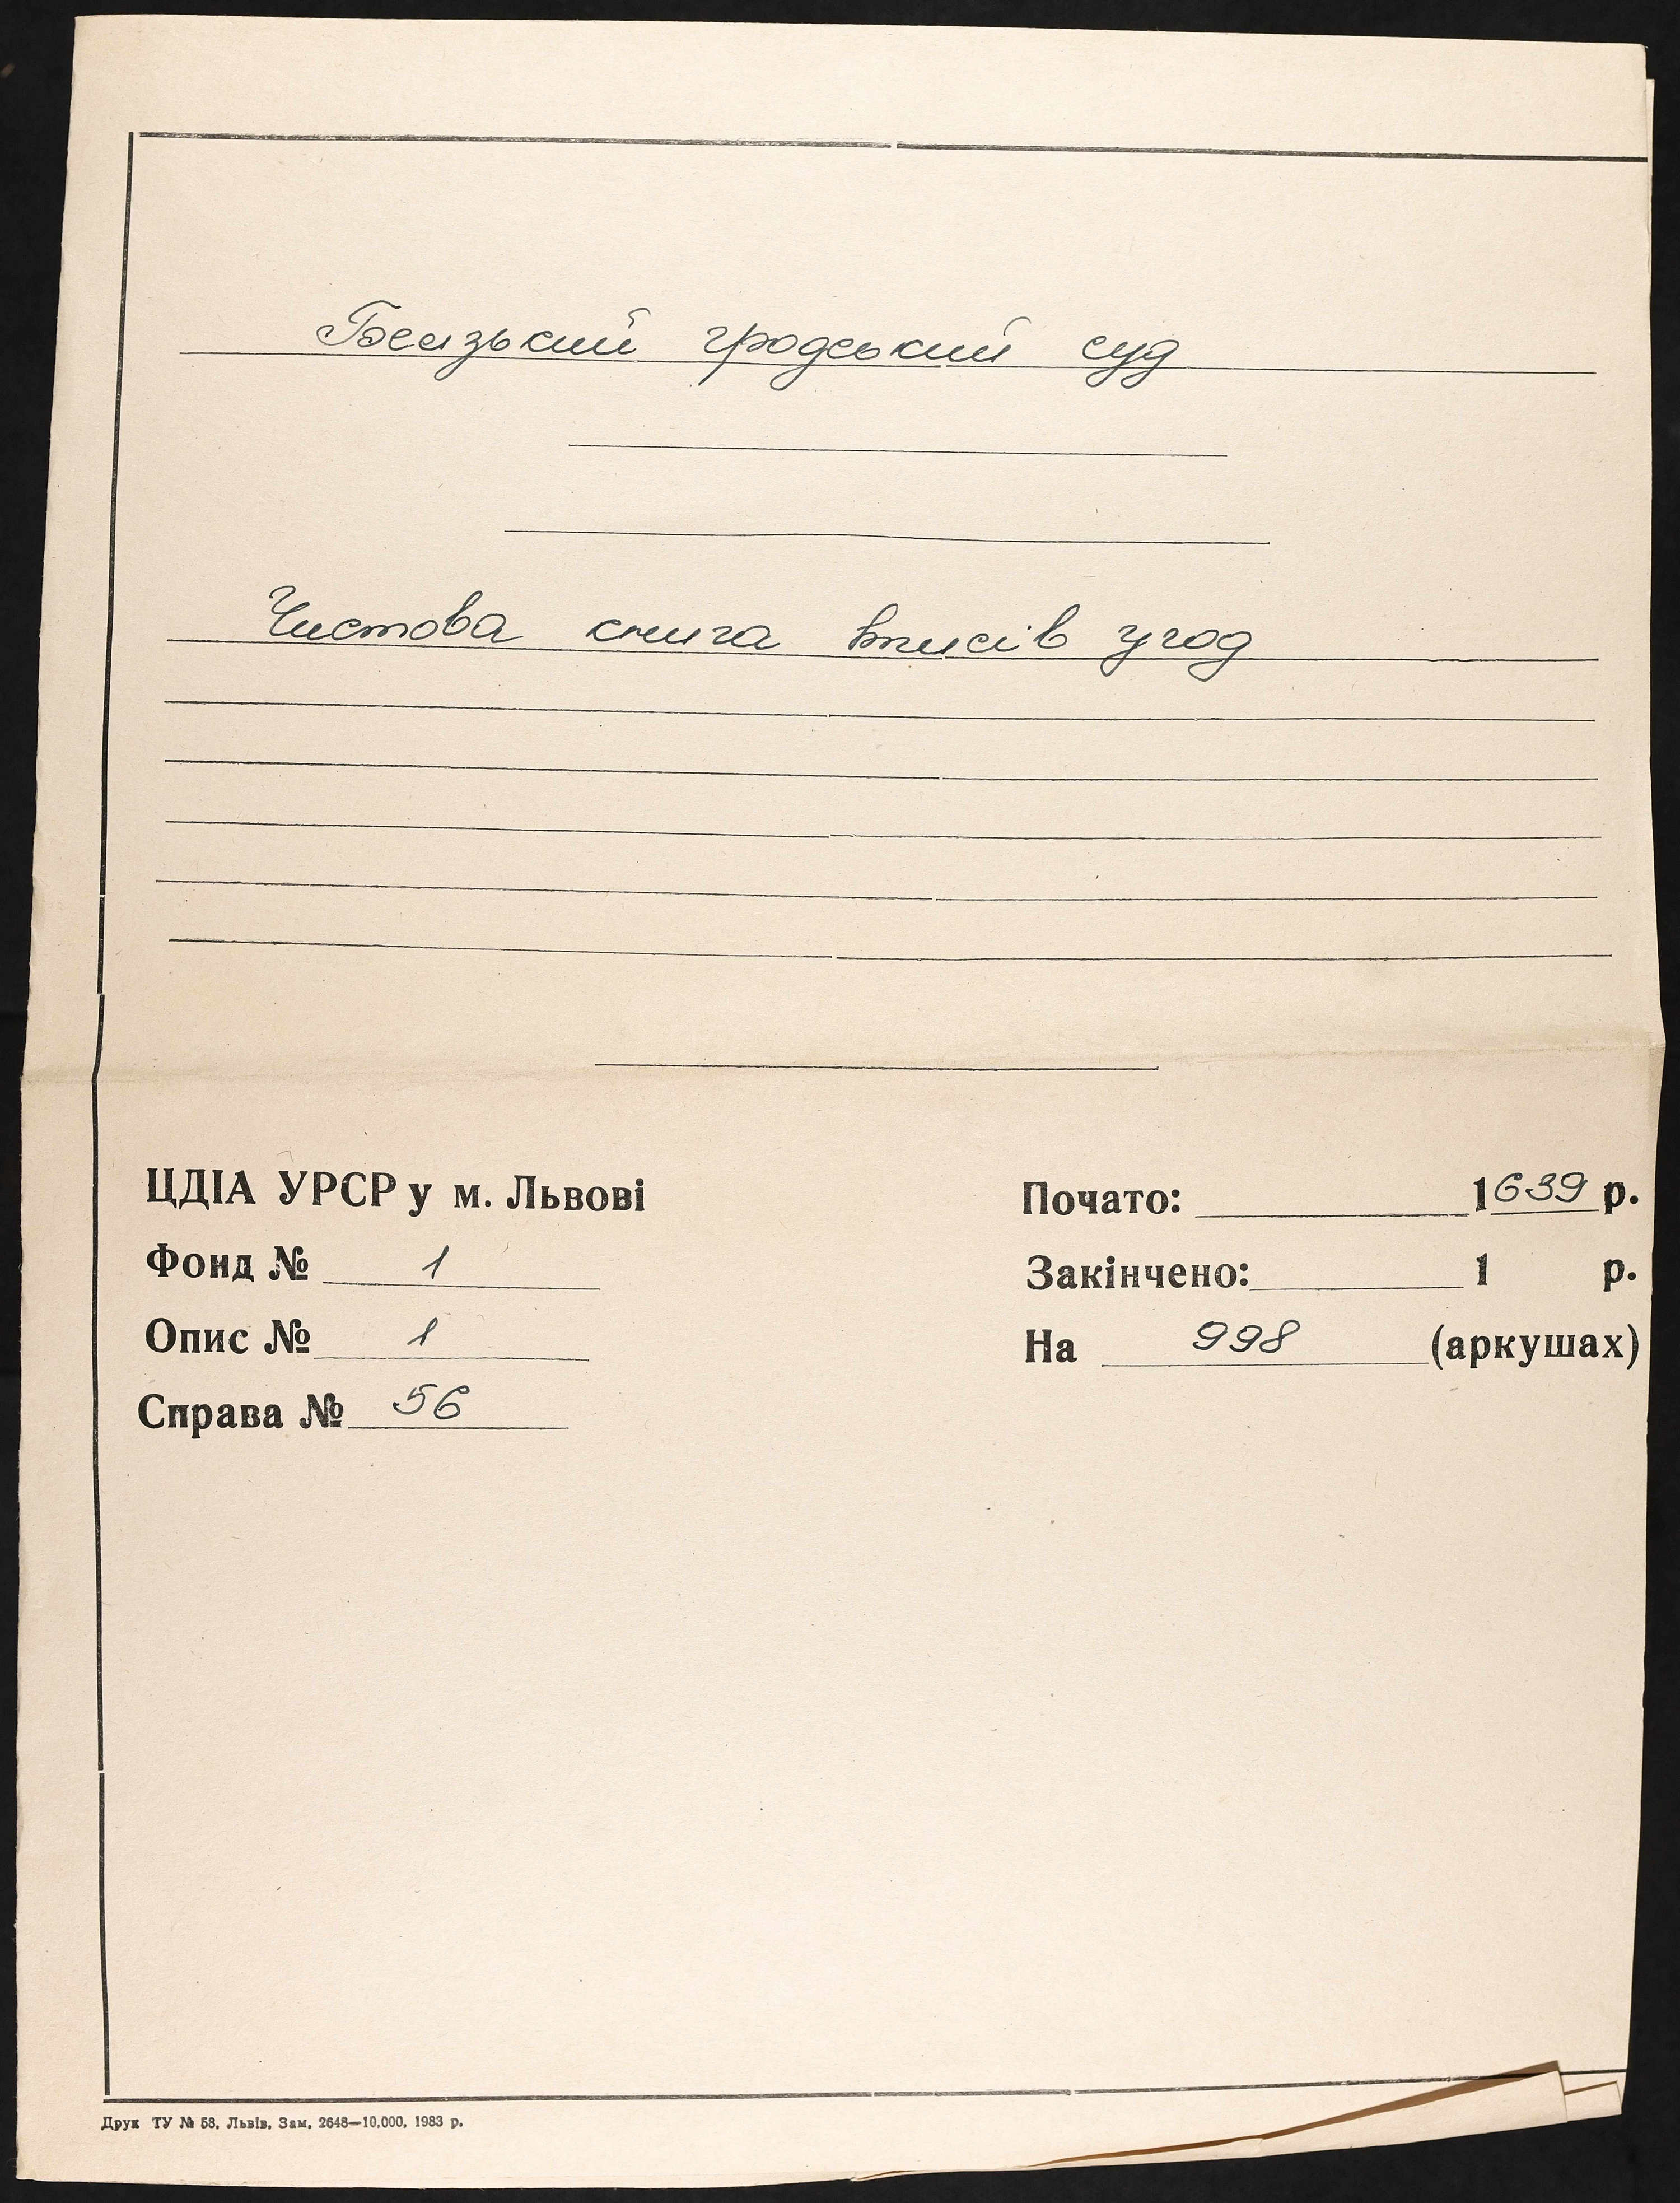 Белзький гродський суд
Чистова книга вписів угод
ЦДІА УРСР у м. Львові
Почато: 1639 р.
Фонд № 1
Закінчено: 1 р.
Опис № 1
На 998 (аркушах)
Справа № 56
Друк ТУ № 58, Львів, Зам. 2648—10.000, 1983 р.